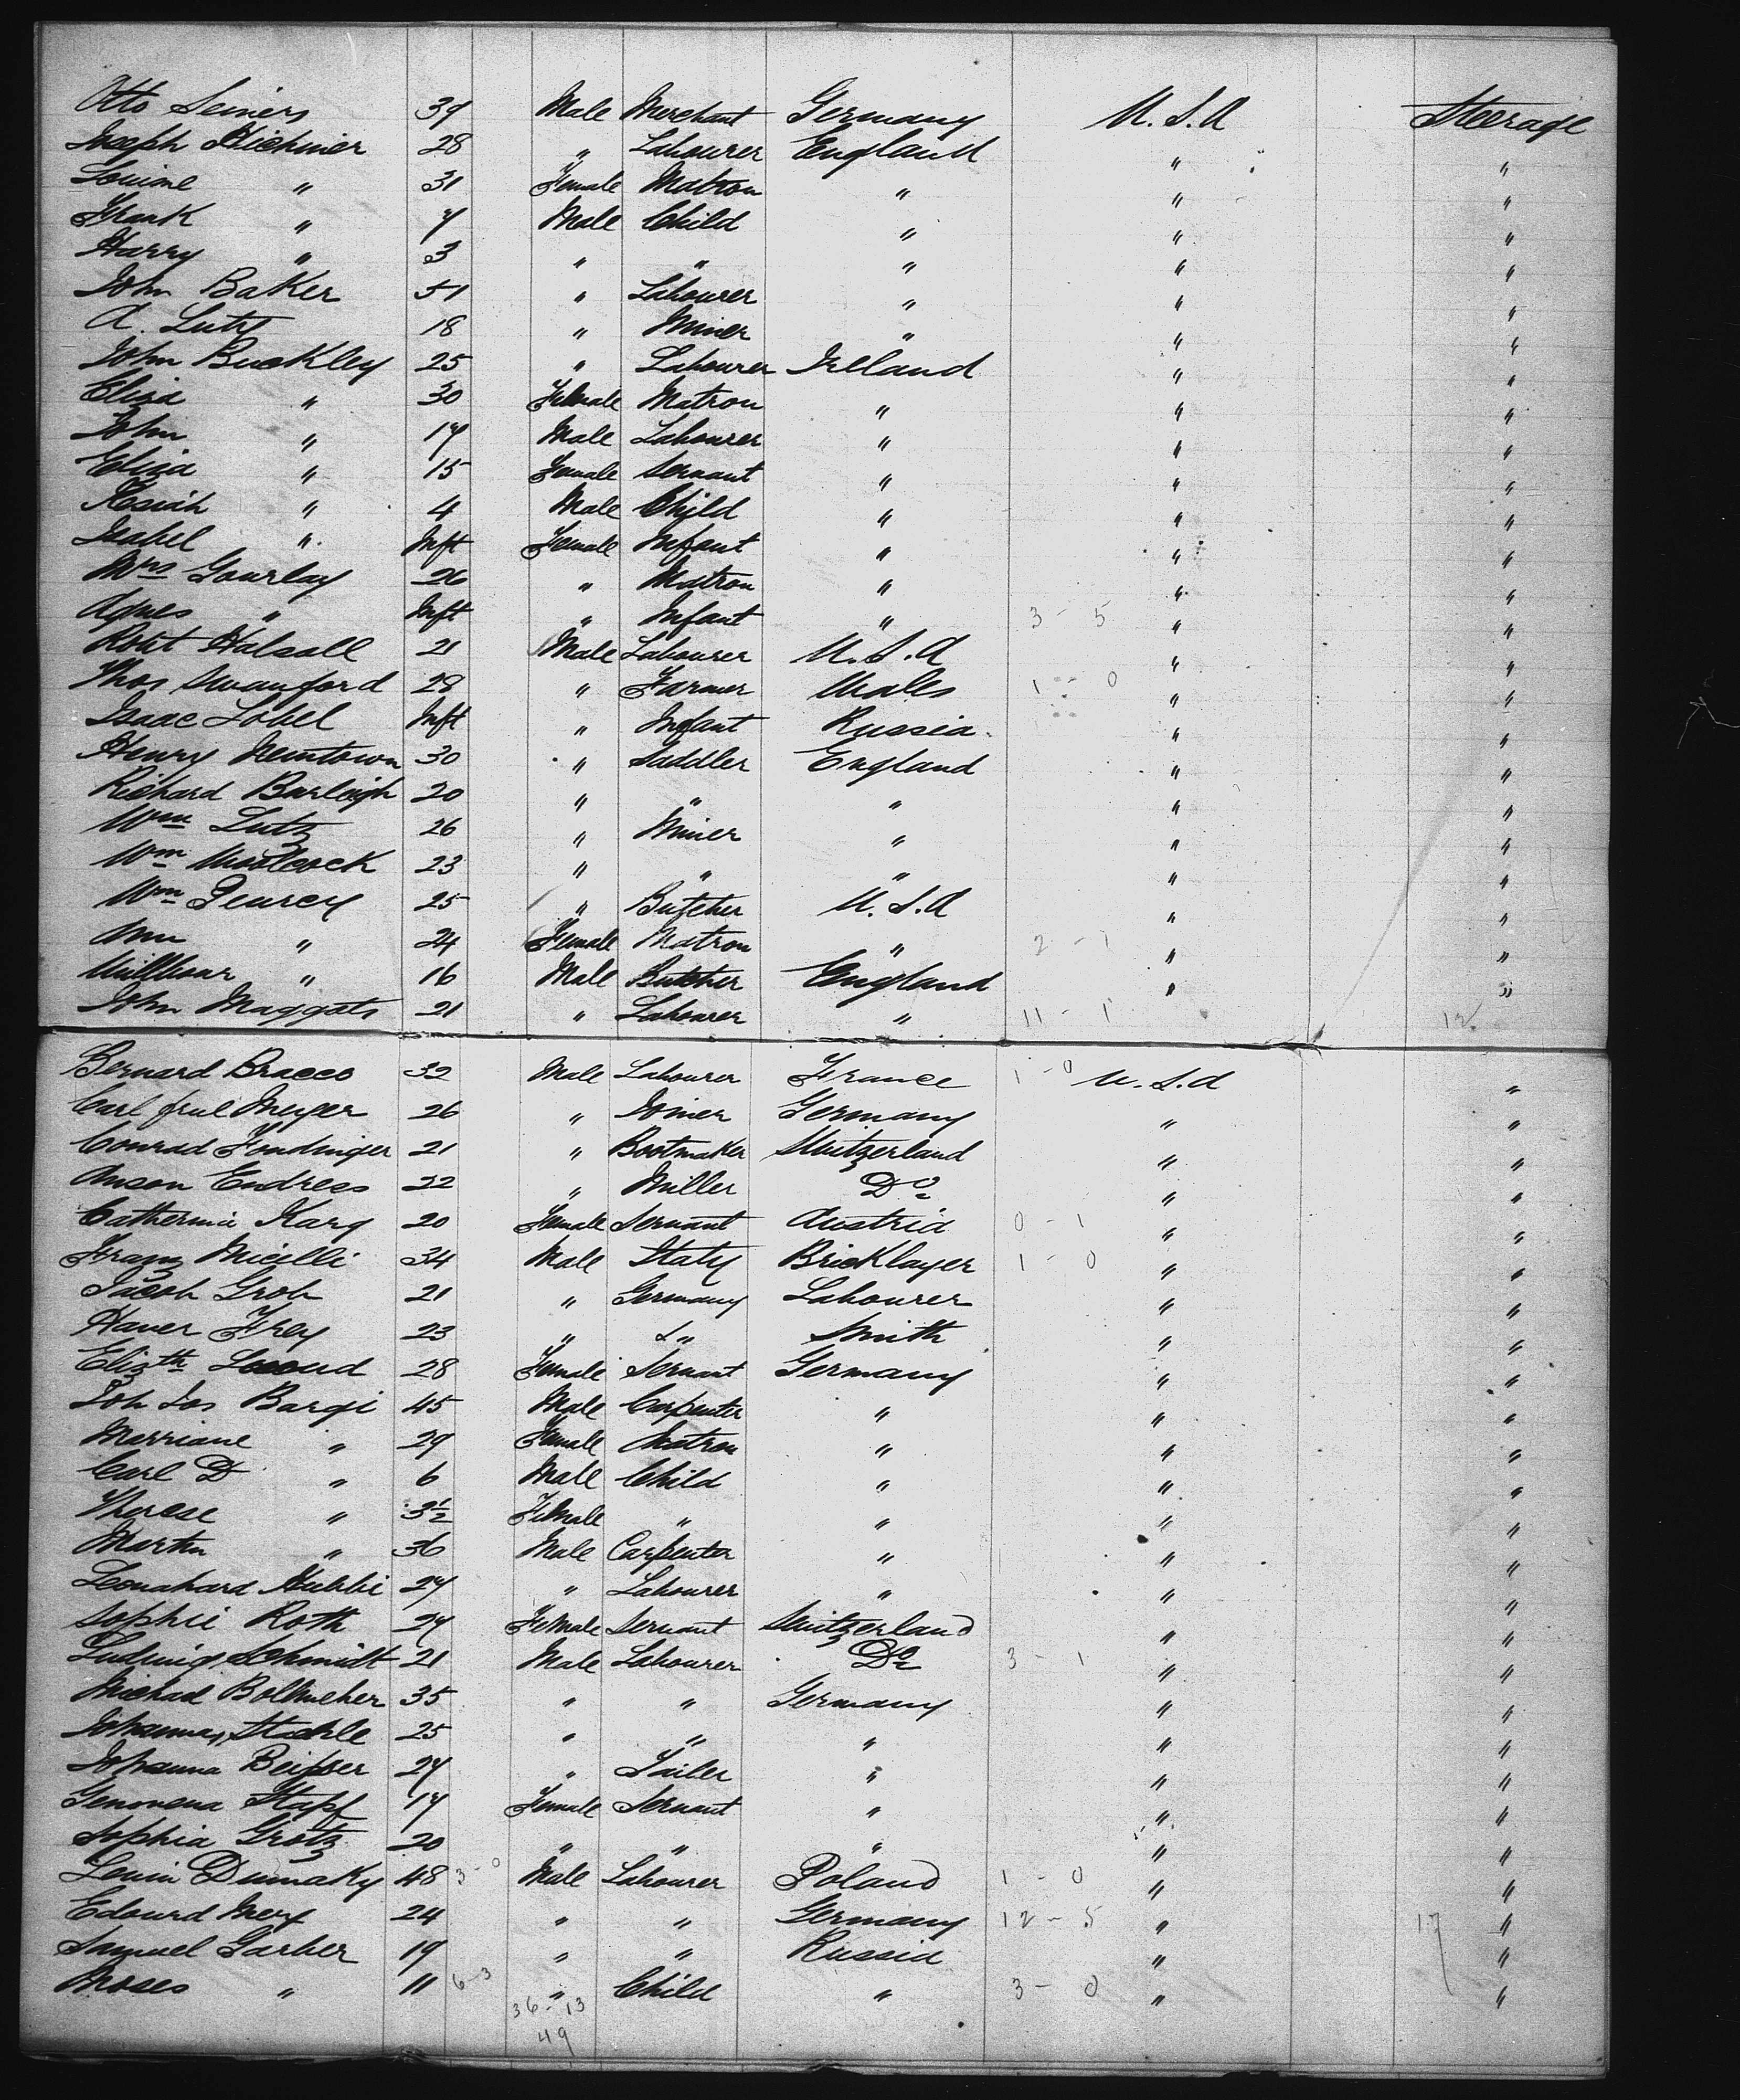 Otto Seiners 39 Male Merchant Germany U.S.A Steerage
Joseph 28 " Labourer England " "
Louise " 31 Female Matron " " "
Frank " 7 Male Child " " "
Harry " 3 " " " " "
John Baker 51 " Labourer " " "
A. Luty 18 " Miner " " "
John Buckley 25 " Labourer Ireland " "
Eliza " 30 Female Matron " " "
John " 17 Male Labourer " " "
Eliza " 15 Female Servant " " "
Kesiah " 4 Male Child " " "
Isabel " Inft Female Infant " " "
Mrs Gourlay 26 " Matron " " "
Agnes " Inft " Infant " 3 - 5 " "
Robt Halsall 21 Male Labourer U.S.A " "
Thos Swanford 28 " Farmer Wales 1 - 0 " "
Isaac Lobel Inft " Infant Russia " "
Henry Newtown 30 " Saddler England " "
Richard Burleigh 20 " " " " "
Wm Lutz 26 " Miner " " "
Wm Woolcock 23 " " " " "
Wm Pearcy 25 " Butcher U.S.A " "
Ann " 24 Female Matron " 2 - 1 " "
" 16 Male Butcher England " "
John Maggots 21 " Labourer " 11 - 1 12
Bernard Bracco 32 Male Labourer France 1 - 0 U.S.A "
Carl Meyer 26 " Joiner Germany " "
Conrad 21 " Bootmaker Switzerland " "
Anson Endress 22 " Miller Do " "
Catherina Karg 20 Female Servant Austria 0 - 1 " "
Franz Micelli 34 Male Italy Bricklayer 1 - 0 " "
Jacob Grob 21 " Germany Labourer " "
Xaver Frey 23 " " Smith " "
Elizth 28 Female Servant Germany " "
Joh Jos Bargi 45 Male Carpenter " " "
Marriane " 29 Female Matron " " "
Carl D " 6 Male Child " " "
Therese " 3½ Female " " " "
Martin " 36 Male Carpenter " " "
Leonahard 27 " Labourer " " "
Sophie Roth 27 Female Servant Switzerland " "
Ludwig Schmidt 21 Male Labourer Do 3 - 1 " "
Michael 35 " " Germany " "
Johannes Staehle 25 " " " " "
Johanna 27 " " " "
Genovena Stapf 17 Female Servant " " "
Sophia Grotz 20 " " " " "
48 3 - 0 Male Labourer Poland 1 - 0 " "
Edourd Merz 24 " " Germany 12 - 5 " 17 "
Samuel Garber 19 " " Russia " "
Moses " 11 6-3 " Child " 3 - 0 " "
36-13
49